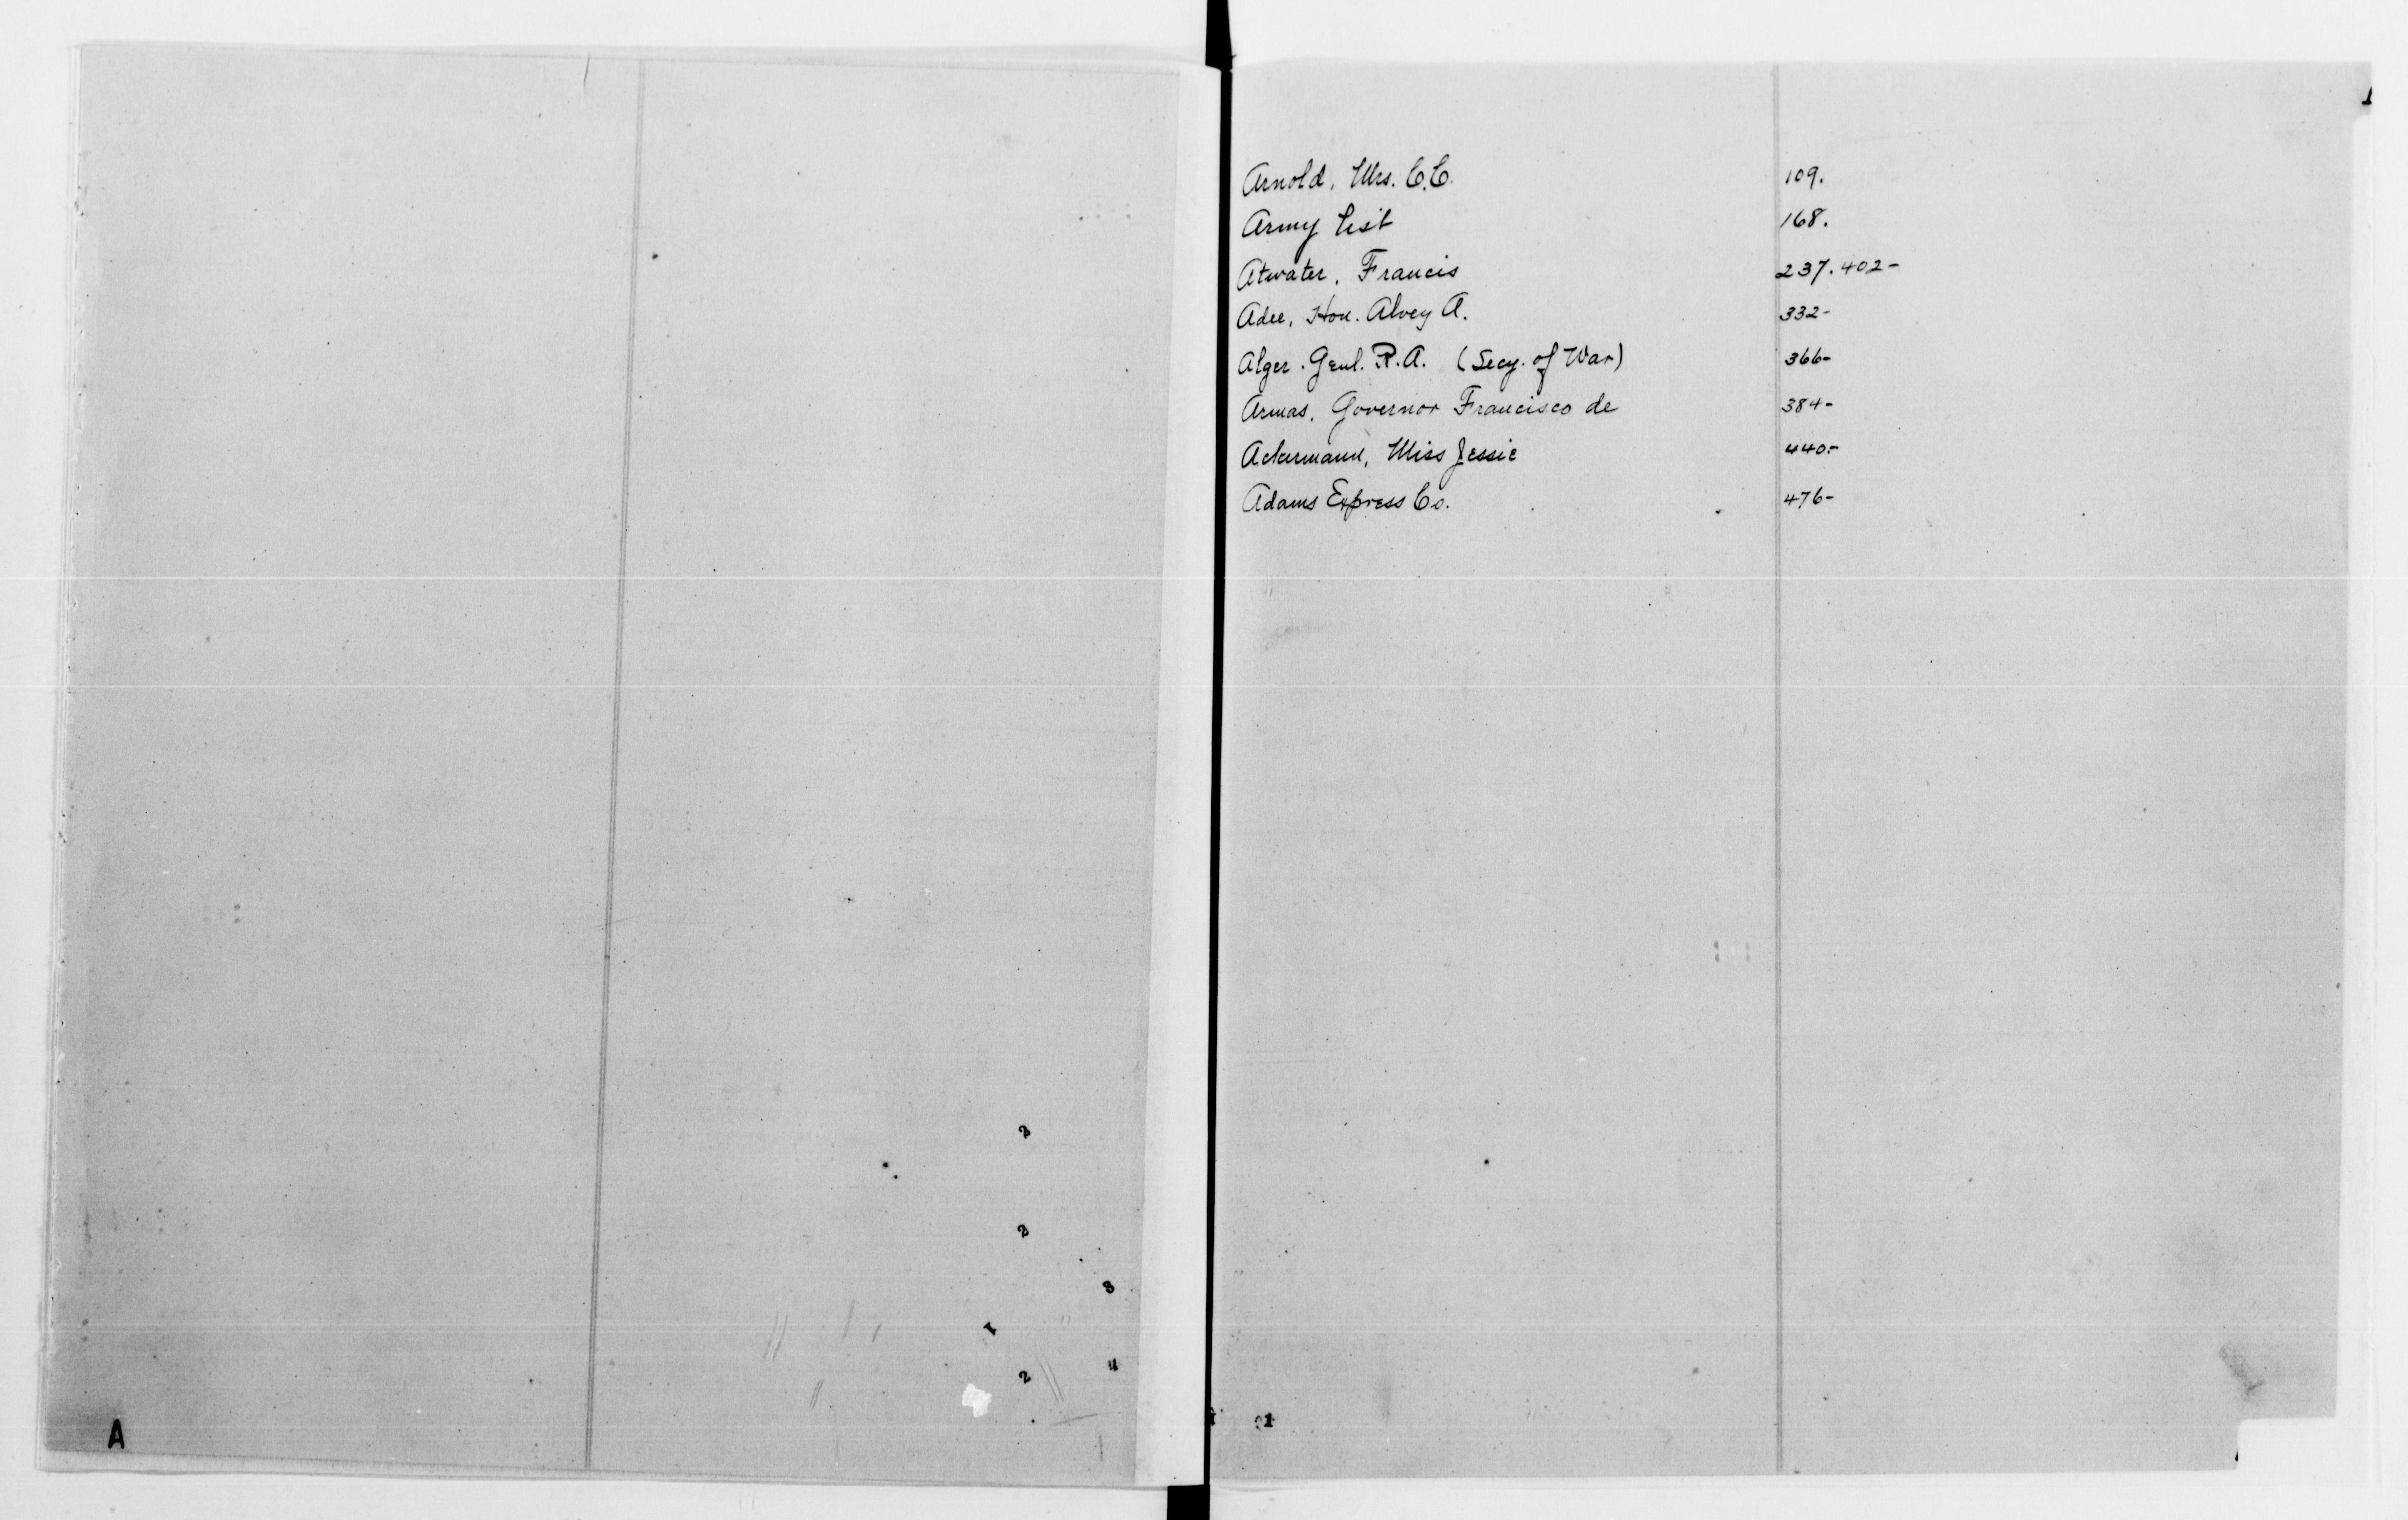 A
Arnold, Mrs. C.C. 109.
Army List 168.
Atwater, Francis 237. 402-
Adee, Hon. Alvey A. 332-
Alger. Genl. R.A. (Secy. of War) 366-
Armas, Governor Francisco de 384-
Ackermann, Miss Jessie 440-
Adams Express Co. 476-